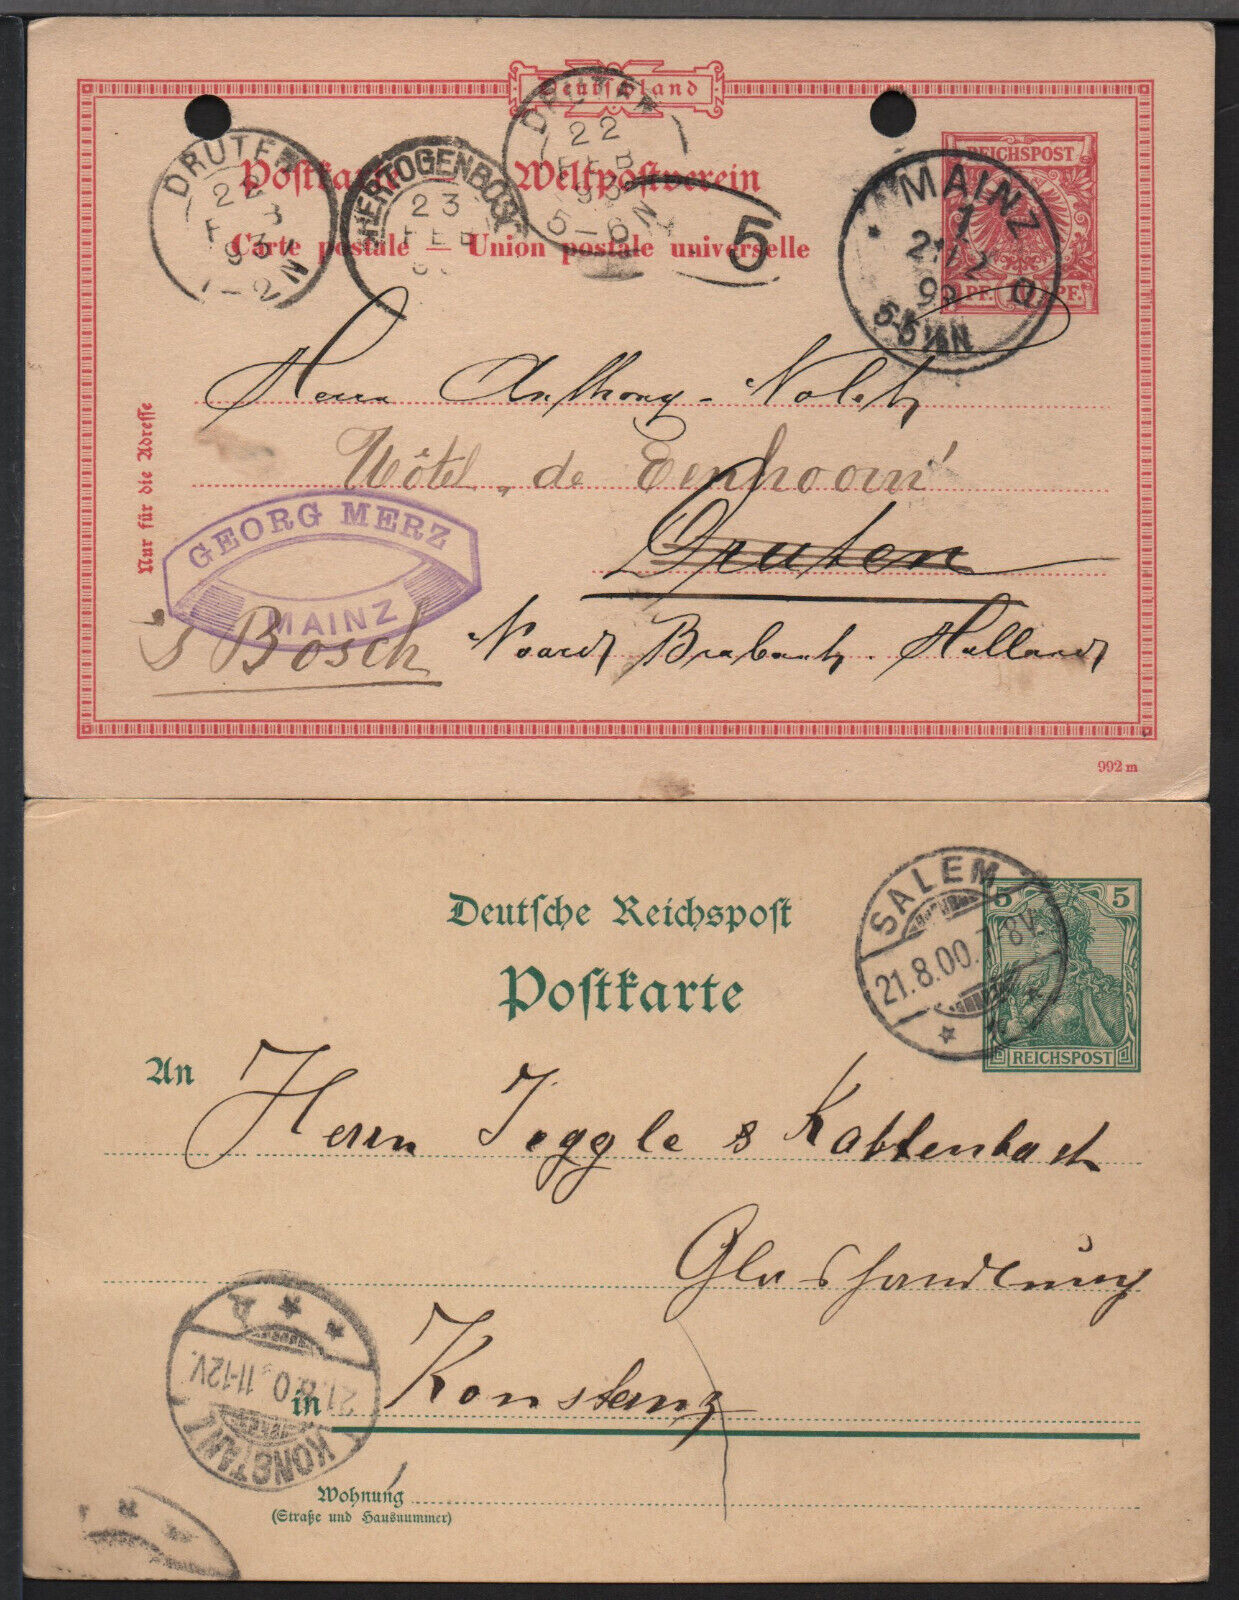 Deutschland
Postkarte Weltpostverein
Carte postale — Union postale universelle
DRUTEN
22
1-2 N
HERTOGENBOSCH
23
FEB
DRUTEN
22
FEB
93
5-6 N
5
MAINZ
1
93
5-5½N
REICHSPOST
PF. 10 PF.
Nur für die Adresse
Herrn Anthony
Hôtel de Eenhoorn
Druten
GEORG MERZ
MAINZ
's Bosch
Noord Brabant. Holland
992 m
Deutsche Reichspost
Postkarte
SALEM
21.8.00. 7-8V.
5 5
REICHSPOST
An Herrn Jeggle & Kattenbach
Glashandlung
in Konstanz
KONSTANZ
21.8.00. 11-12V.
Wohnung
(Straße und Hausnummer)